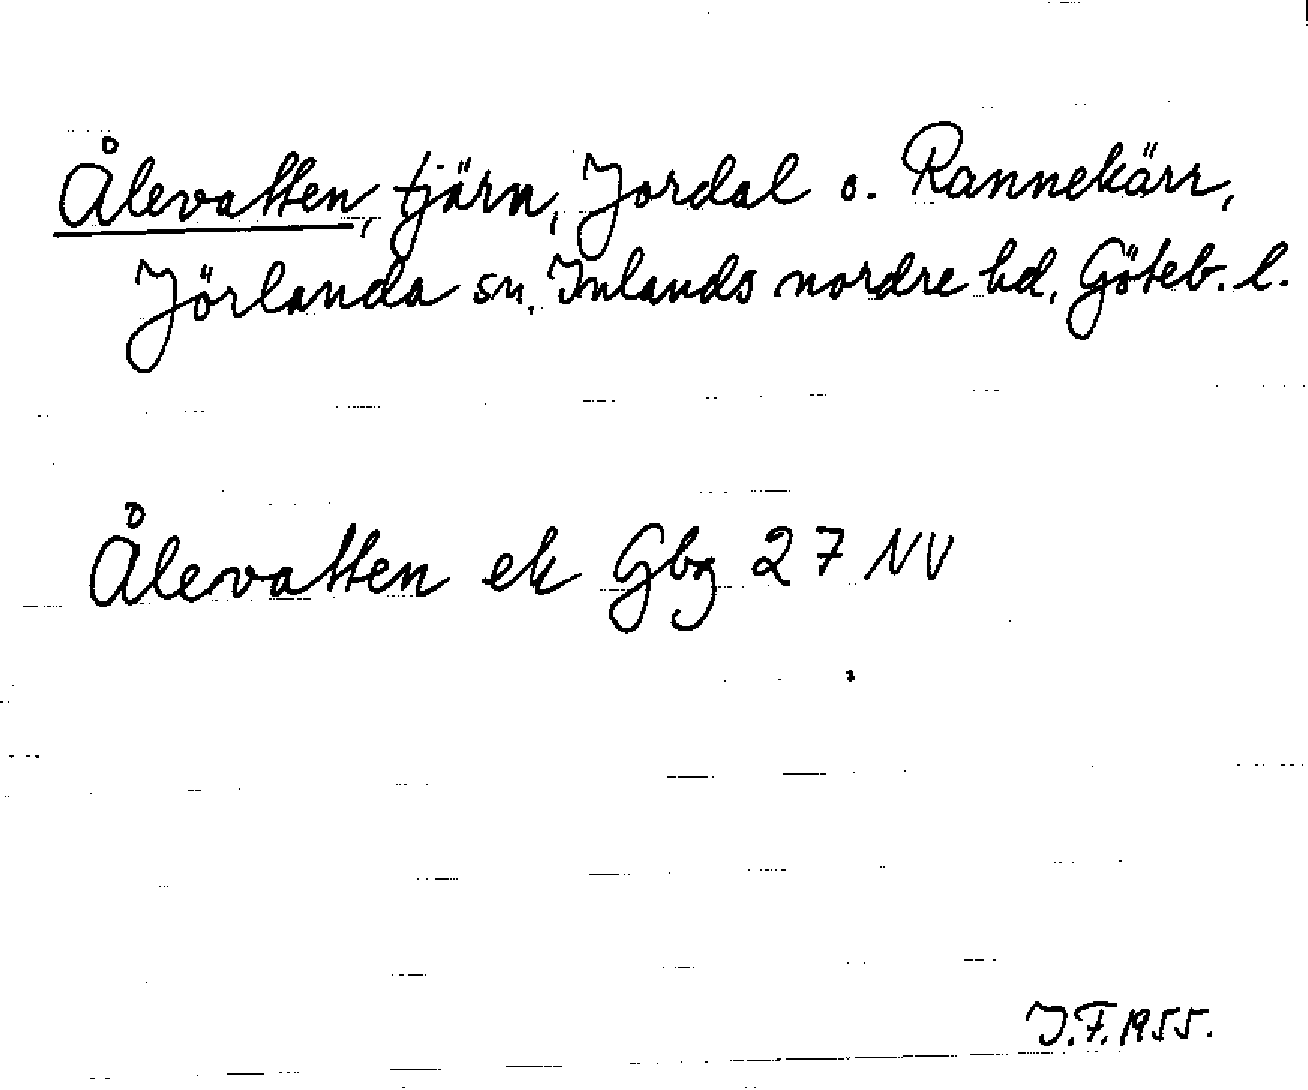 Ålevatten, tjärn, Jordal o. Rannekärr,
Jörlanda sn, Inlands nordre hd, Göteb. l.
Ålevatten ek Gbg 27 NV
J.F. 1955.